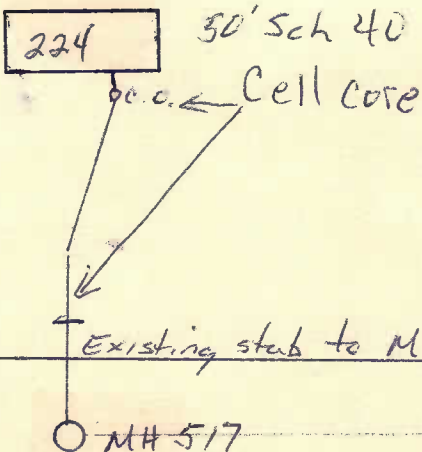 224
50' Sch 40
c.o.
Cell core
Existing stub to M
MH 517